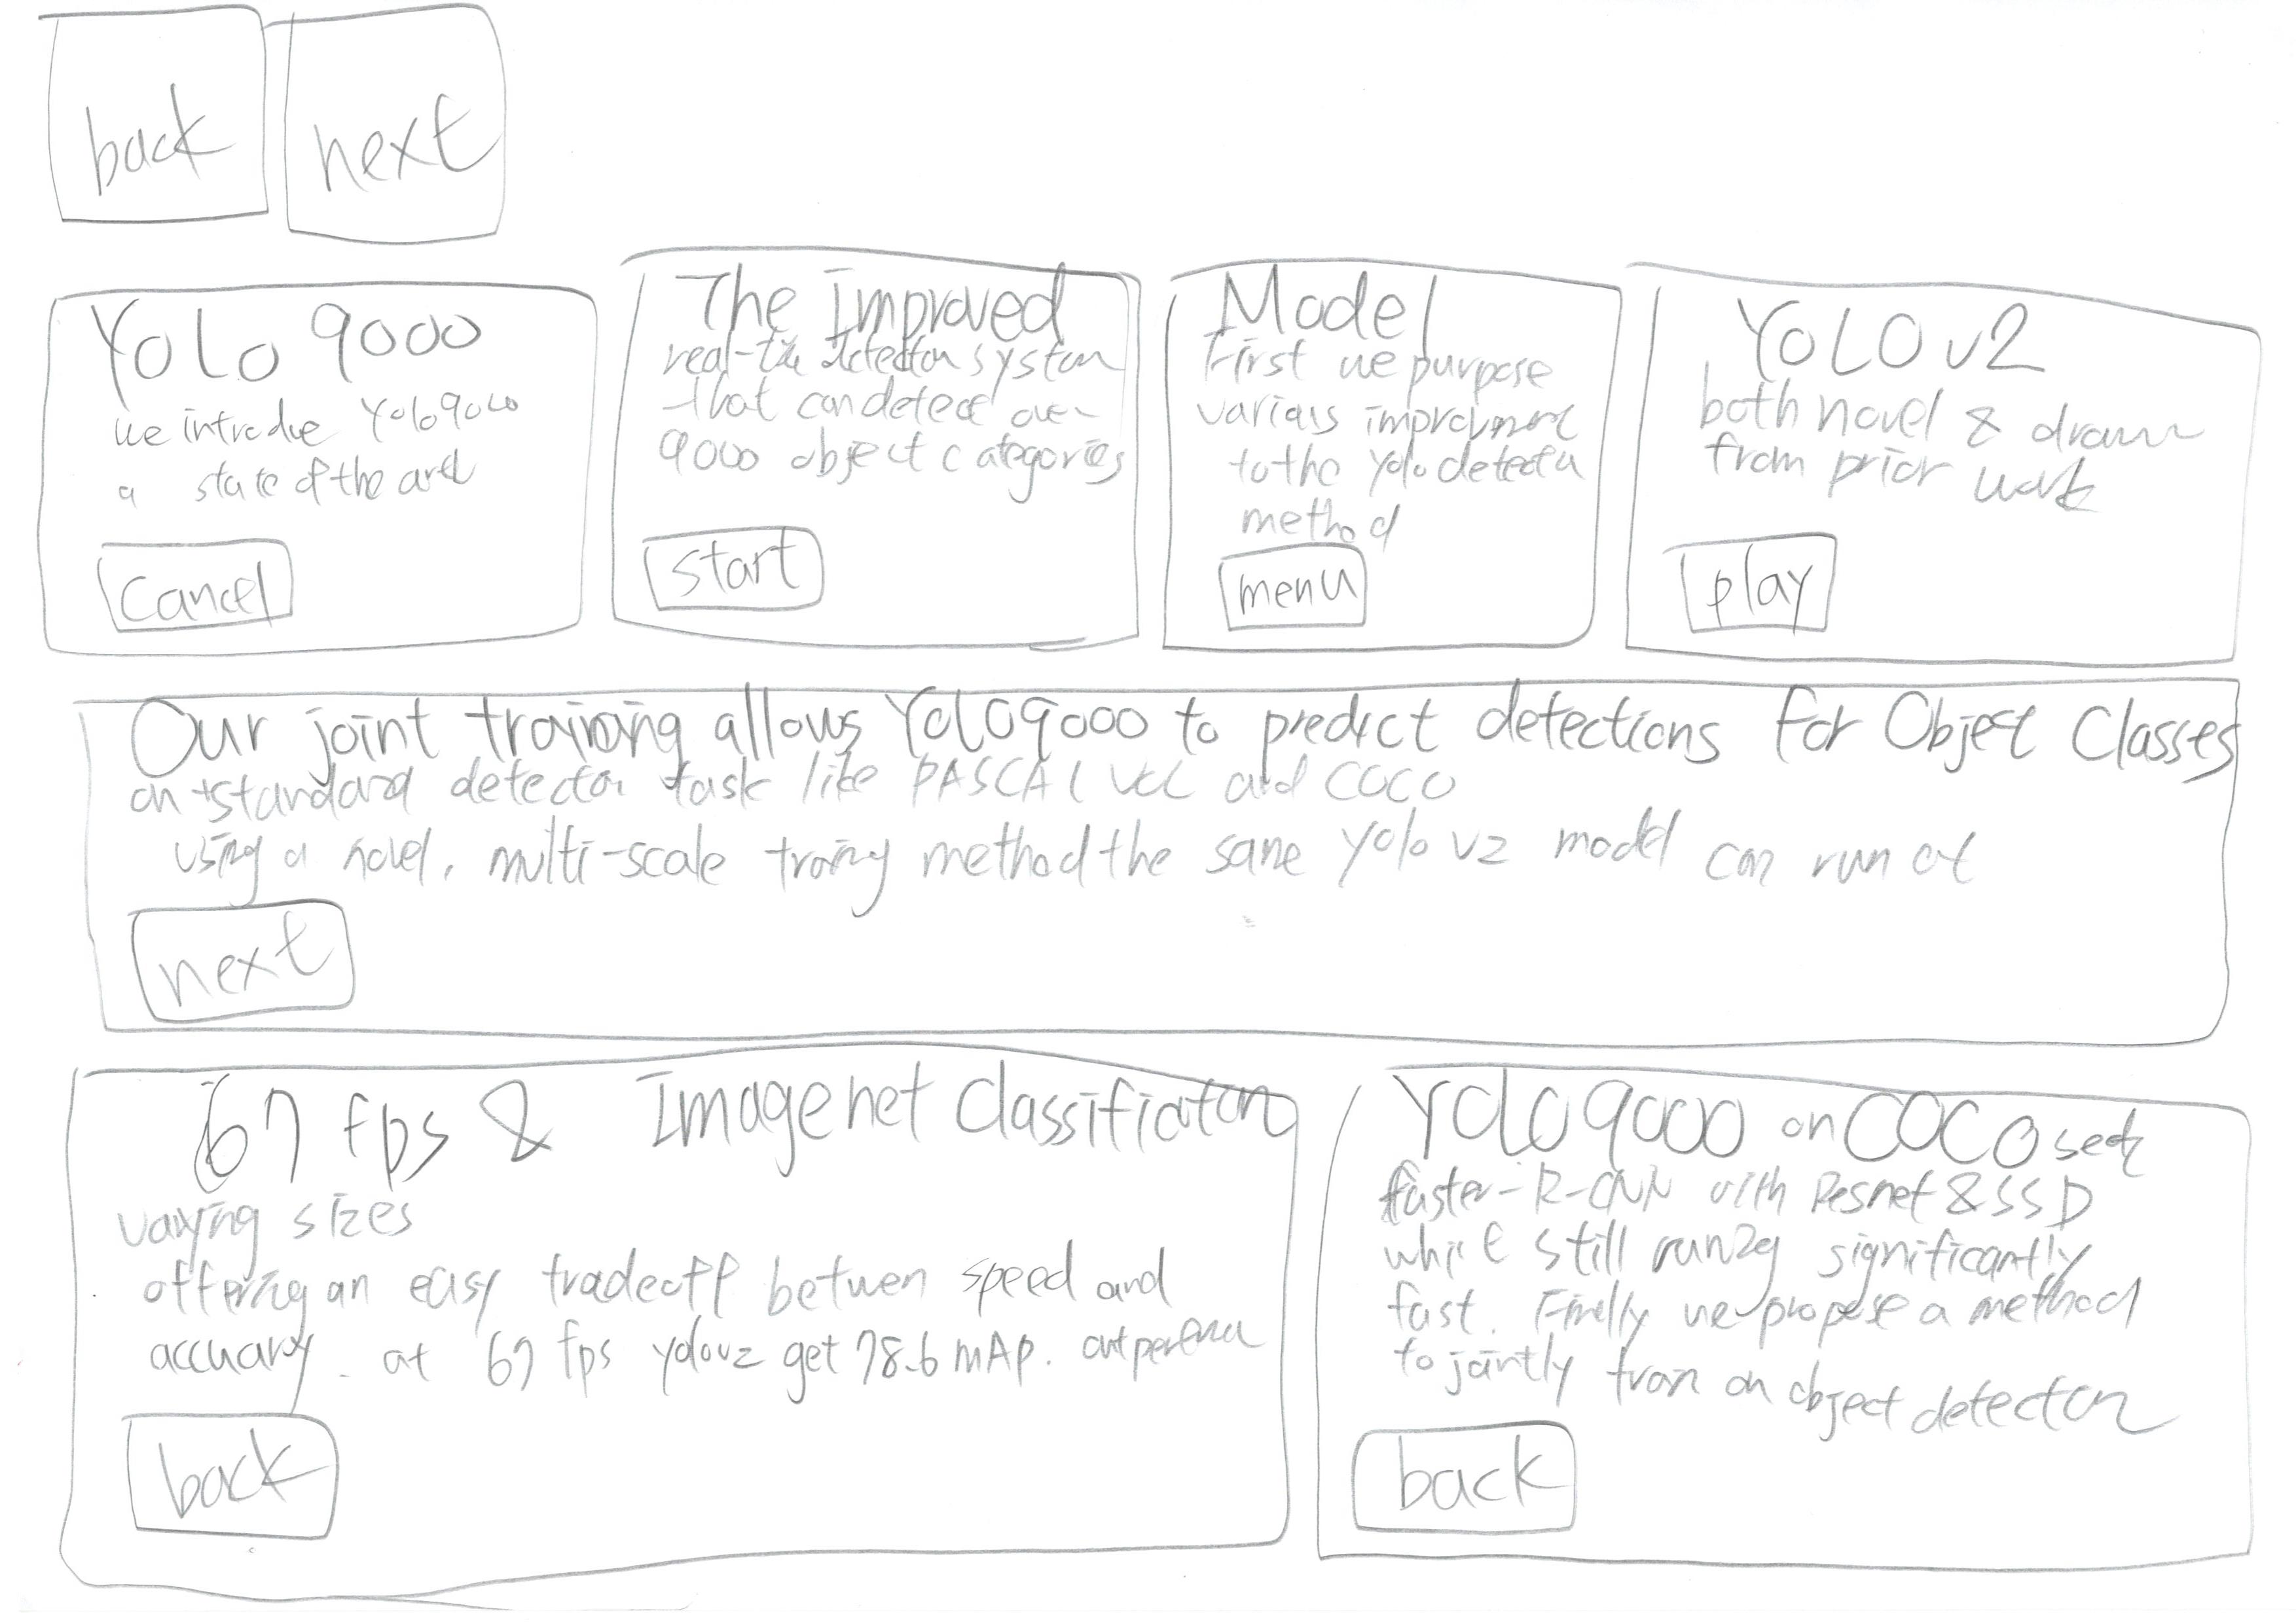 back
next
Yolo 9000
we introdue Yolo9000
a state of the art
cancel
The Improved
real-time detection system
that can detect over
9000 object categories
start
Model
First we purpose
various improvment
to the yolo detection
method
menu
YOLO v2
both novel & drawn
from prior work
play
Our joint training allows Yolo9000 to predict detections for Object Classes
on standard detection task like PASCAL VOC and COCO
using a novel, multi-scale training method the same Yolo v2 model can run at
next
67 fps & Imagenet Classification
varying sizes
offering an easy tradeoff betwen speed and
accuary. at 67 fps yolov2 get 78.6 mAp. outperform
back
Yolo 9000 on COCO set
faster-R-CNN with Resnet & SSD
while still running significantly
fast. Finally we propose a method
to jointly train on object detection
back